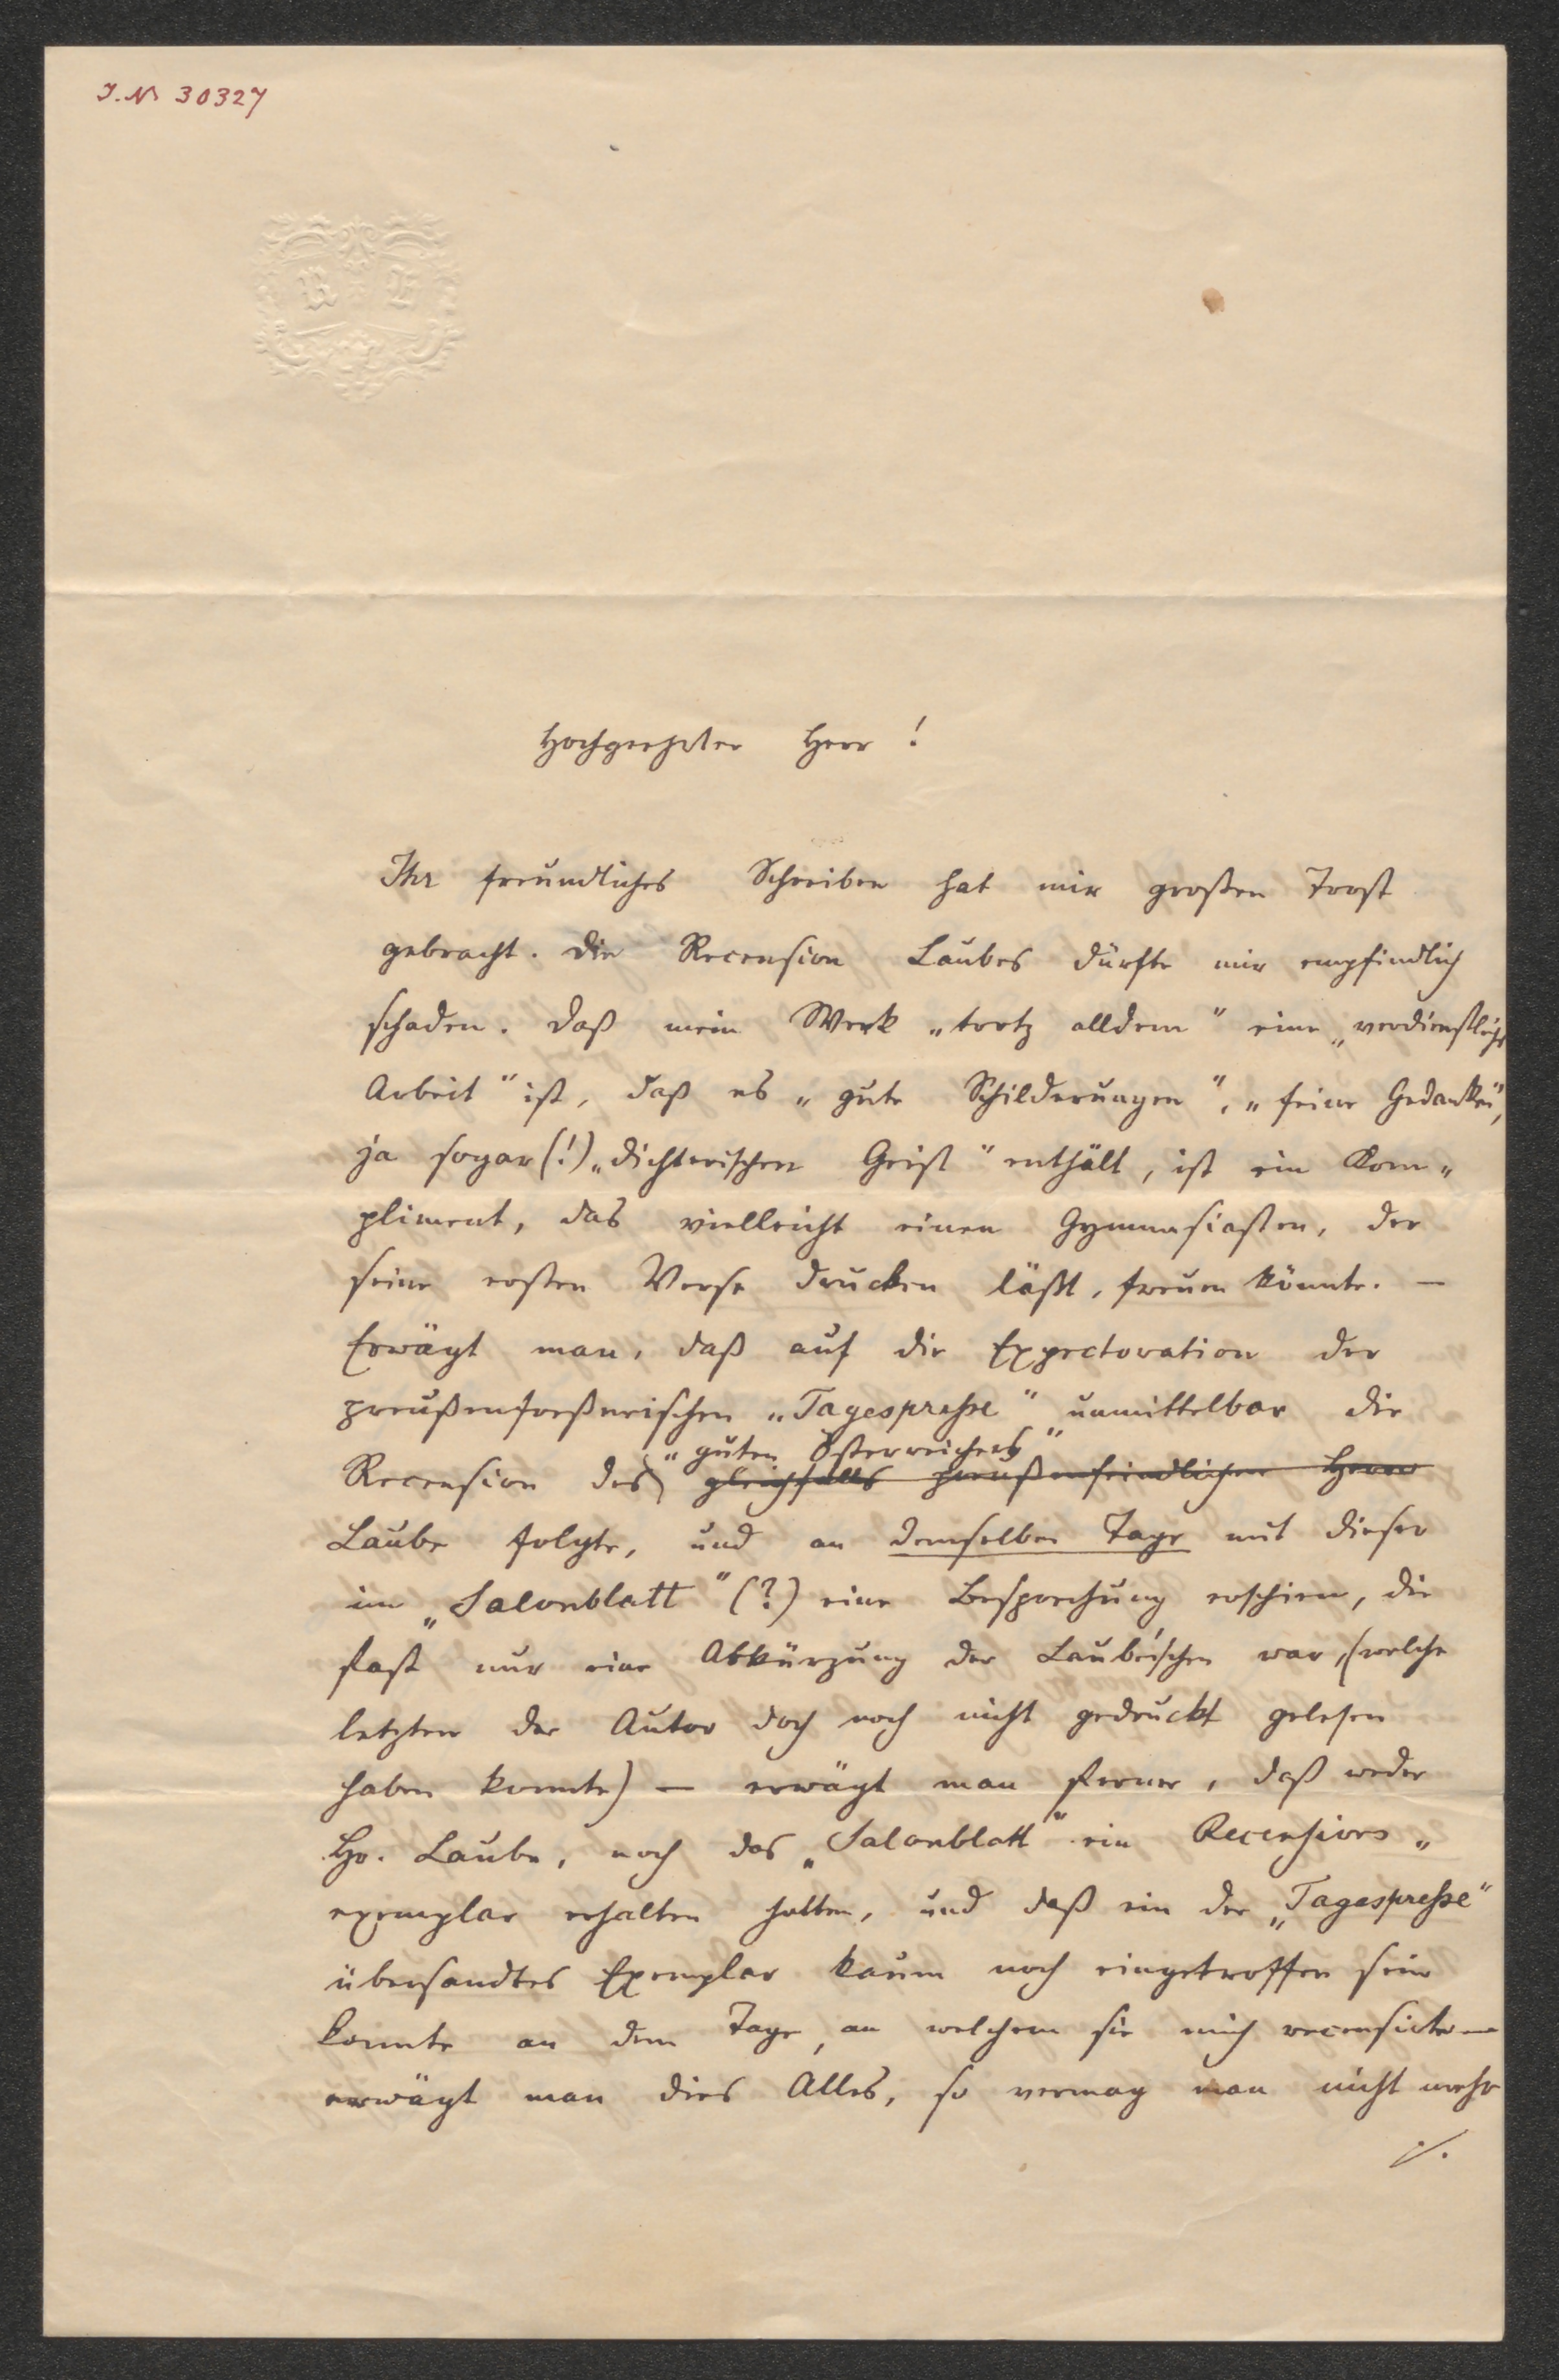 I.N. 30327
Hochgeehrter Herr!
Ihr freundliches Schreiben hat mir großen Trost
gebracht. Die Recension Laubes dürfte mir empfindlich
schaden. Daß mein Werk „trotz alldem" eine „verdienstliche
Arbeit" ist, daß es „gute Schilderungen", „feine Gedanken",
ja sogar (!) „dichterischen Geist" enthält, ist ein Kom„
pliment, das vielleicht einen Gymnasiasten, der
seine ersten Verse drucken läßt, freuen könnte. —
Erwägt man, daß auf die Expectoration der
preußenfreßerischen „Tagespresse" unmittelbar die
„guten Österreichers"
Recension des gleichfalls preußenfeindlichen Herrn
Laube folgte, und an demselben Tage mit dieser
im „Salonblatt" (?) eine Besprechung erschien, die
fast nur eine Abkürzung der Laube'schen war, (welche
letzten der Autor doch noch nicht gedruckt gelesen
haben konnte) — erwägt man ferner, daß weder
Hr. Laube, noch das „Salonblatt" ein Recensions„
exemplar erhalten hatten, und daß ein der „Tagespresse"
übersandtes Exemplar kaum noch eingetroffen sein
konnte an dem Tage, an welchem sie mich recensirte —
erwägt man dies Alles, so vermag man nicht mehr
./.